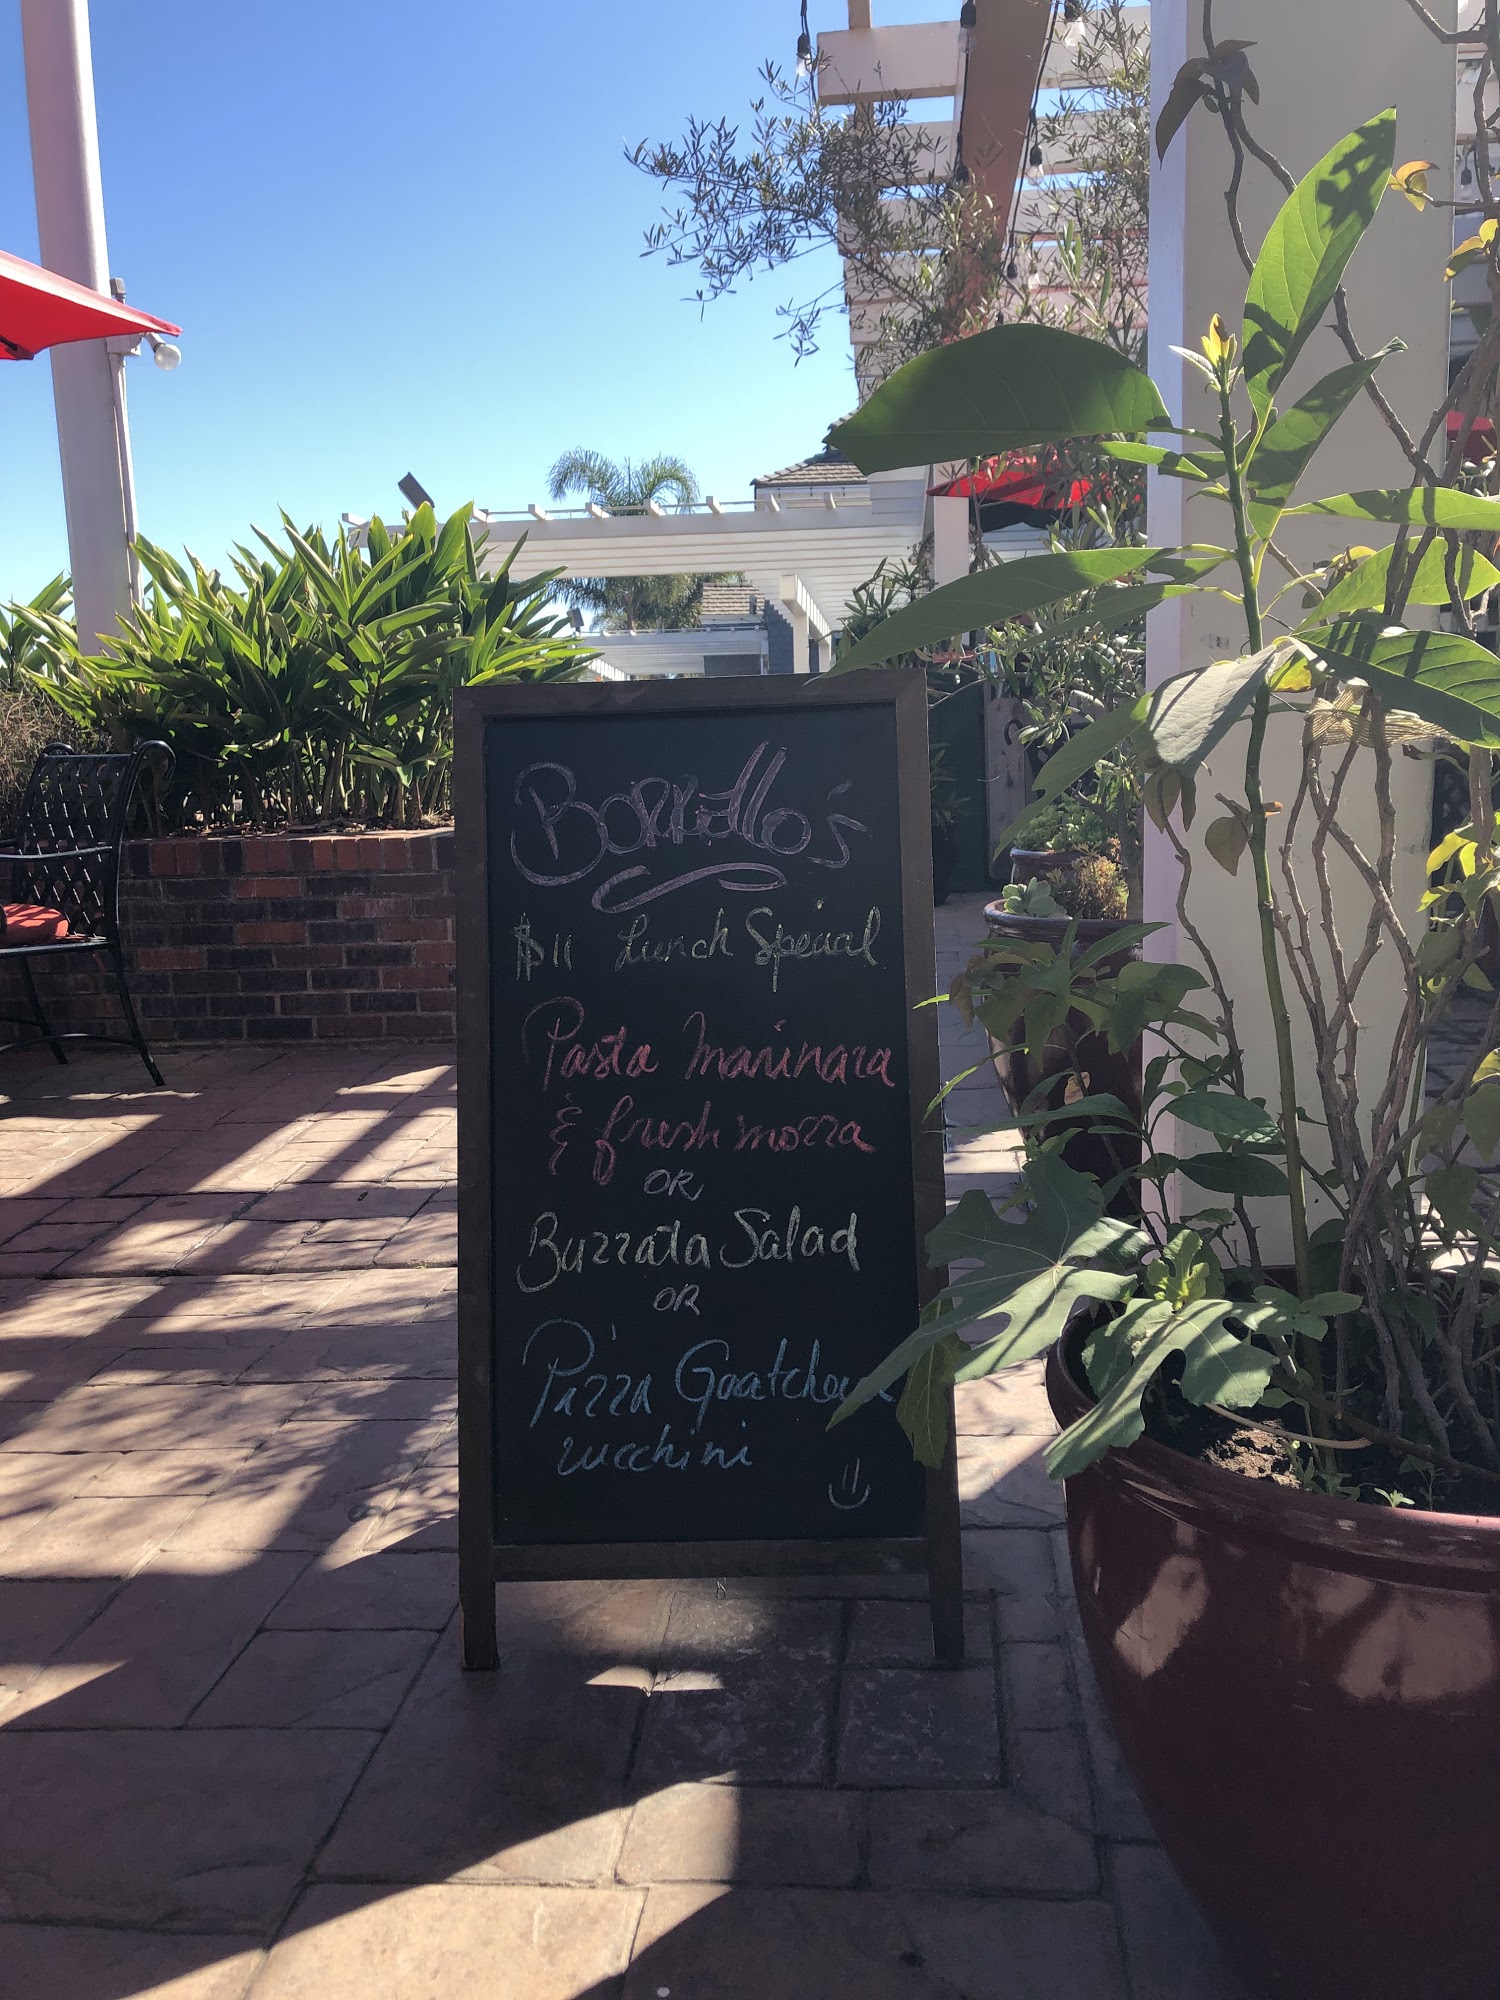 Borrello's
$11 Lunch Special
Pasta Marinara
& fresh mozza
OR
Buzzata Salad
OR
Pizza
zucchini